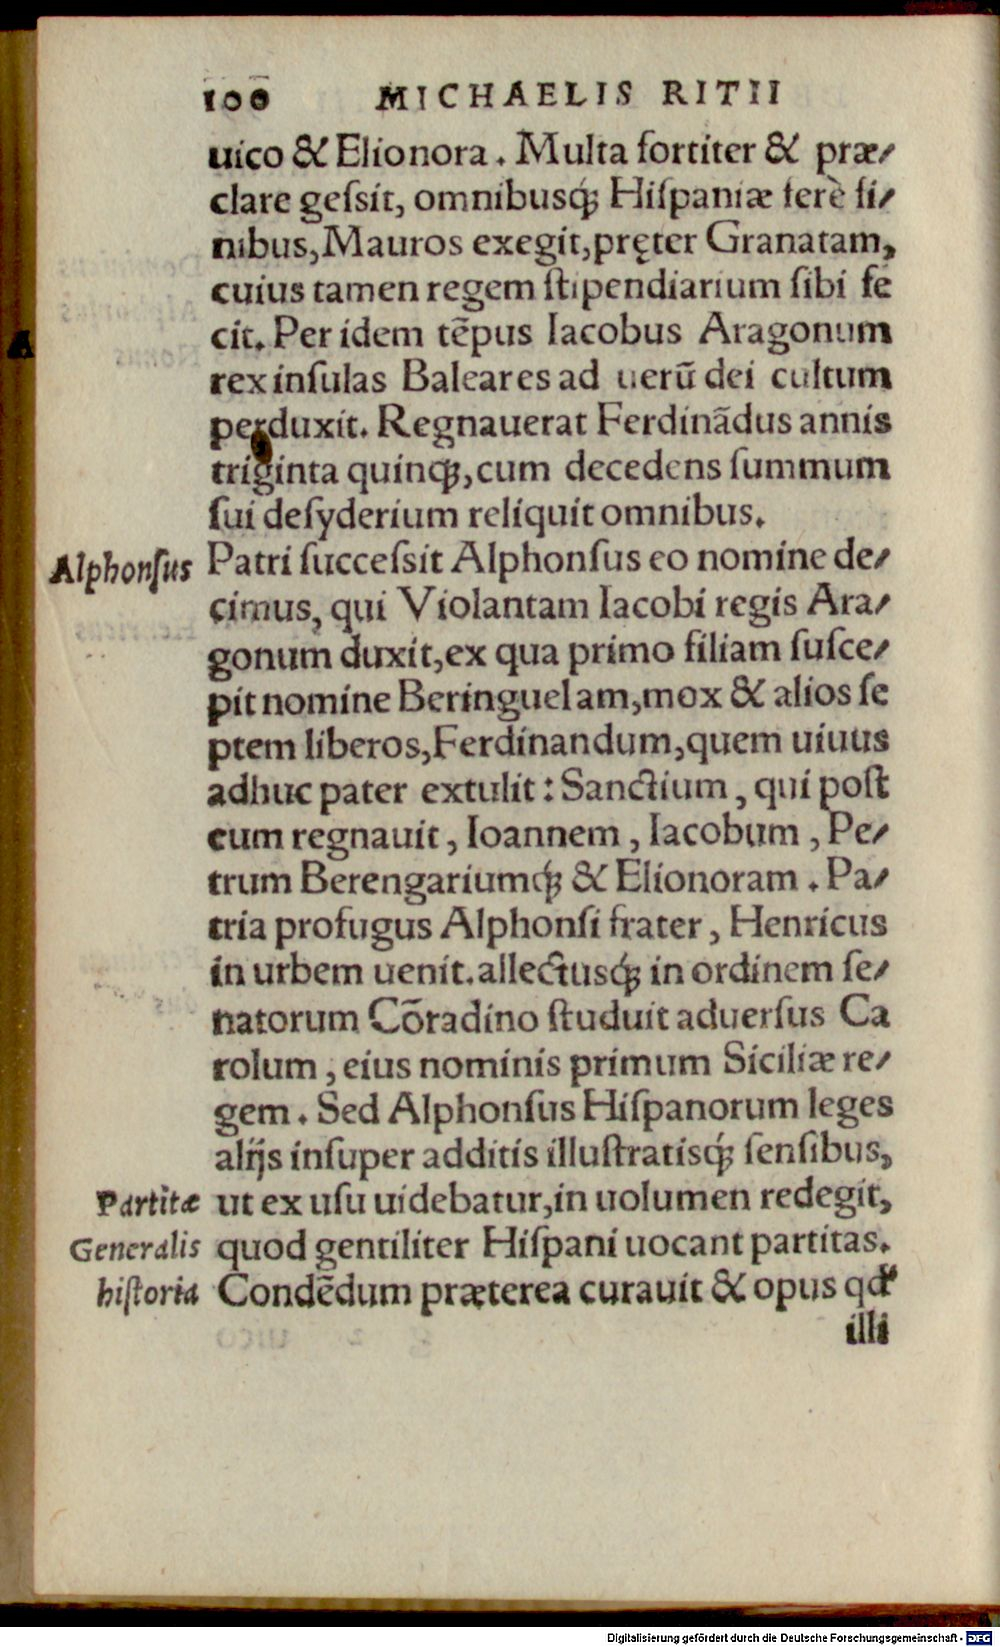 100 MICHAELIS RITII
uico & Elionora. Multa fortiter & præ/
clare geſsit, omnibusq́ꝫ Hiſpaniæ ferè fi/
nibus, Mauros exegit, pręter Granatam,
cuius tamen regem ſtipendiarium ſibi fe
cit. Per idem tẽpus Iacobus Aragonum
rex inſulas Baleares ad uerũ dei cultum
perduxit. Regnauerat Ferdinãdus annis
triginta quinq́ꝫ, cum decedens ſummum
ſui deſyderium reliquit omnibus.
Alphonſus
Patri ſucceſsit Alphonſus eo nomine de/
cimus, qui Violantam Iacobi regis Ara/
gonum duxit, ex qua primo filiam ſuſce/
pit nomine Beringuelam, mox & alios ſe
ptem liberos, Ferdinandum, quem uiuus
adhuc pater extulit: Sanctium, qui poſt
eum regnauit, Ioannem, Iacobum, Pe/
trum Berengariumq́ꝫ & Elionoram. Pa/
tria profugus Alphonſi frater, Henricus
in urbem uenit. allectusq́ꝫ in ordinem ſe/
natorum Cõradino ſtuduit aduerſus Ca
rolum, eius nominis primum Siciliæ re/
gem. Sed Alphonſus Hiſpanorum leges
alijs inſuper additis illuſtratisq́ꝫ ſenſibus,
Partitæ
ut ex uſu uidebatur, in uolumen redegit,
Generalis
quod gentiliter Hiſpani uocant partitas.
hiſtoria
Condẽdum præterea curauit & opus qđ
illi
Digitalisierung gefördert durch die Deutsche Forschungsgemeinschaft - DFG